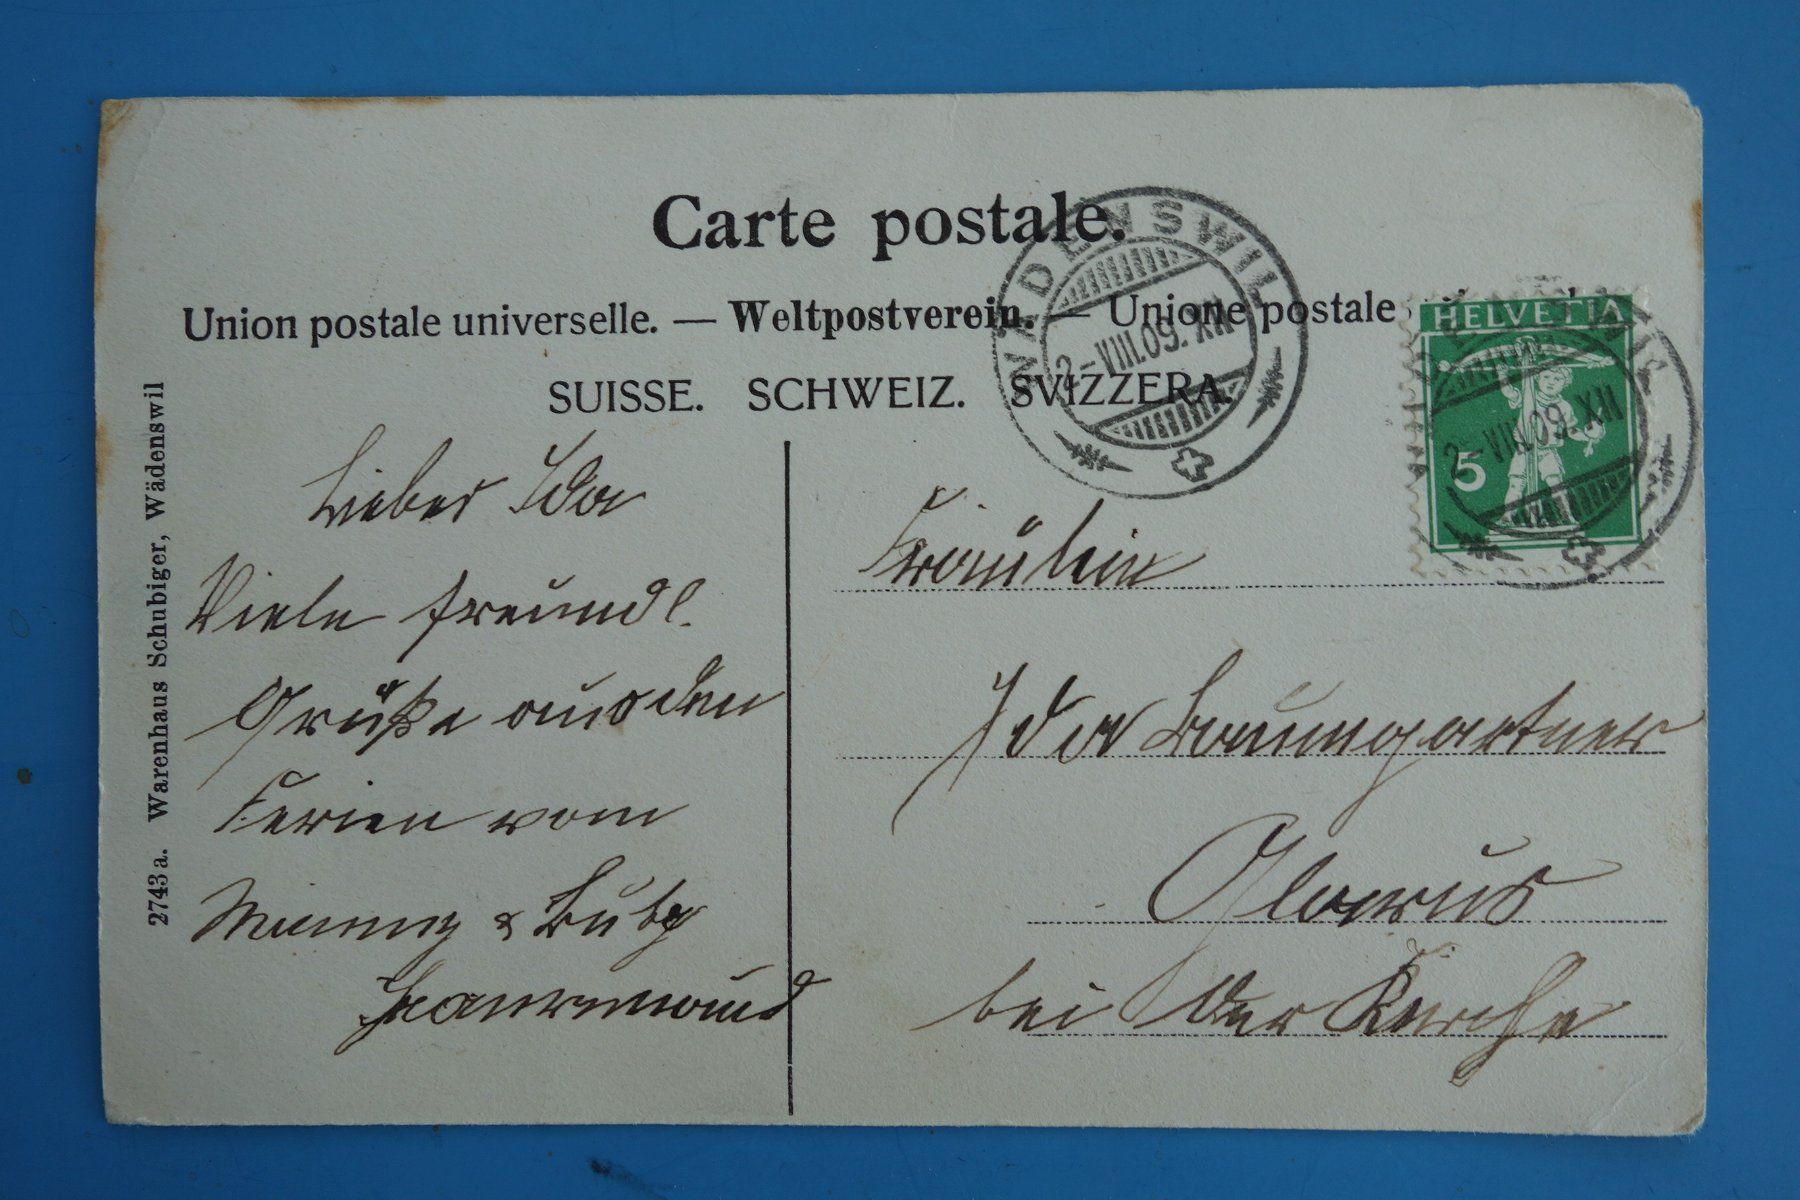 Carte postale.
Union postale universelle. — Weltpostverein. — Unione postale
SUISSE. SCHWEIZ. SVIZZERA.
WÄDENSWIL
2-VIII.09. XII
HELVETIA
5
WÄDENSWIL
2-VIII.09. XII
2743 a. Warenhaus Schubiger, Wädenswil
Lieber Ida
Viele freundl.
Grüße aus den
Ferien vom
&
Fräulein
Ida Baumgartner
Glarus
bei der Kirche